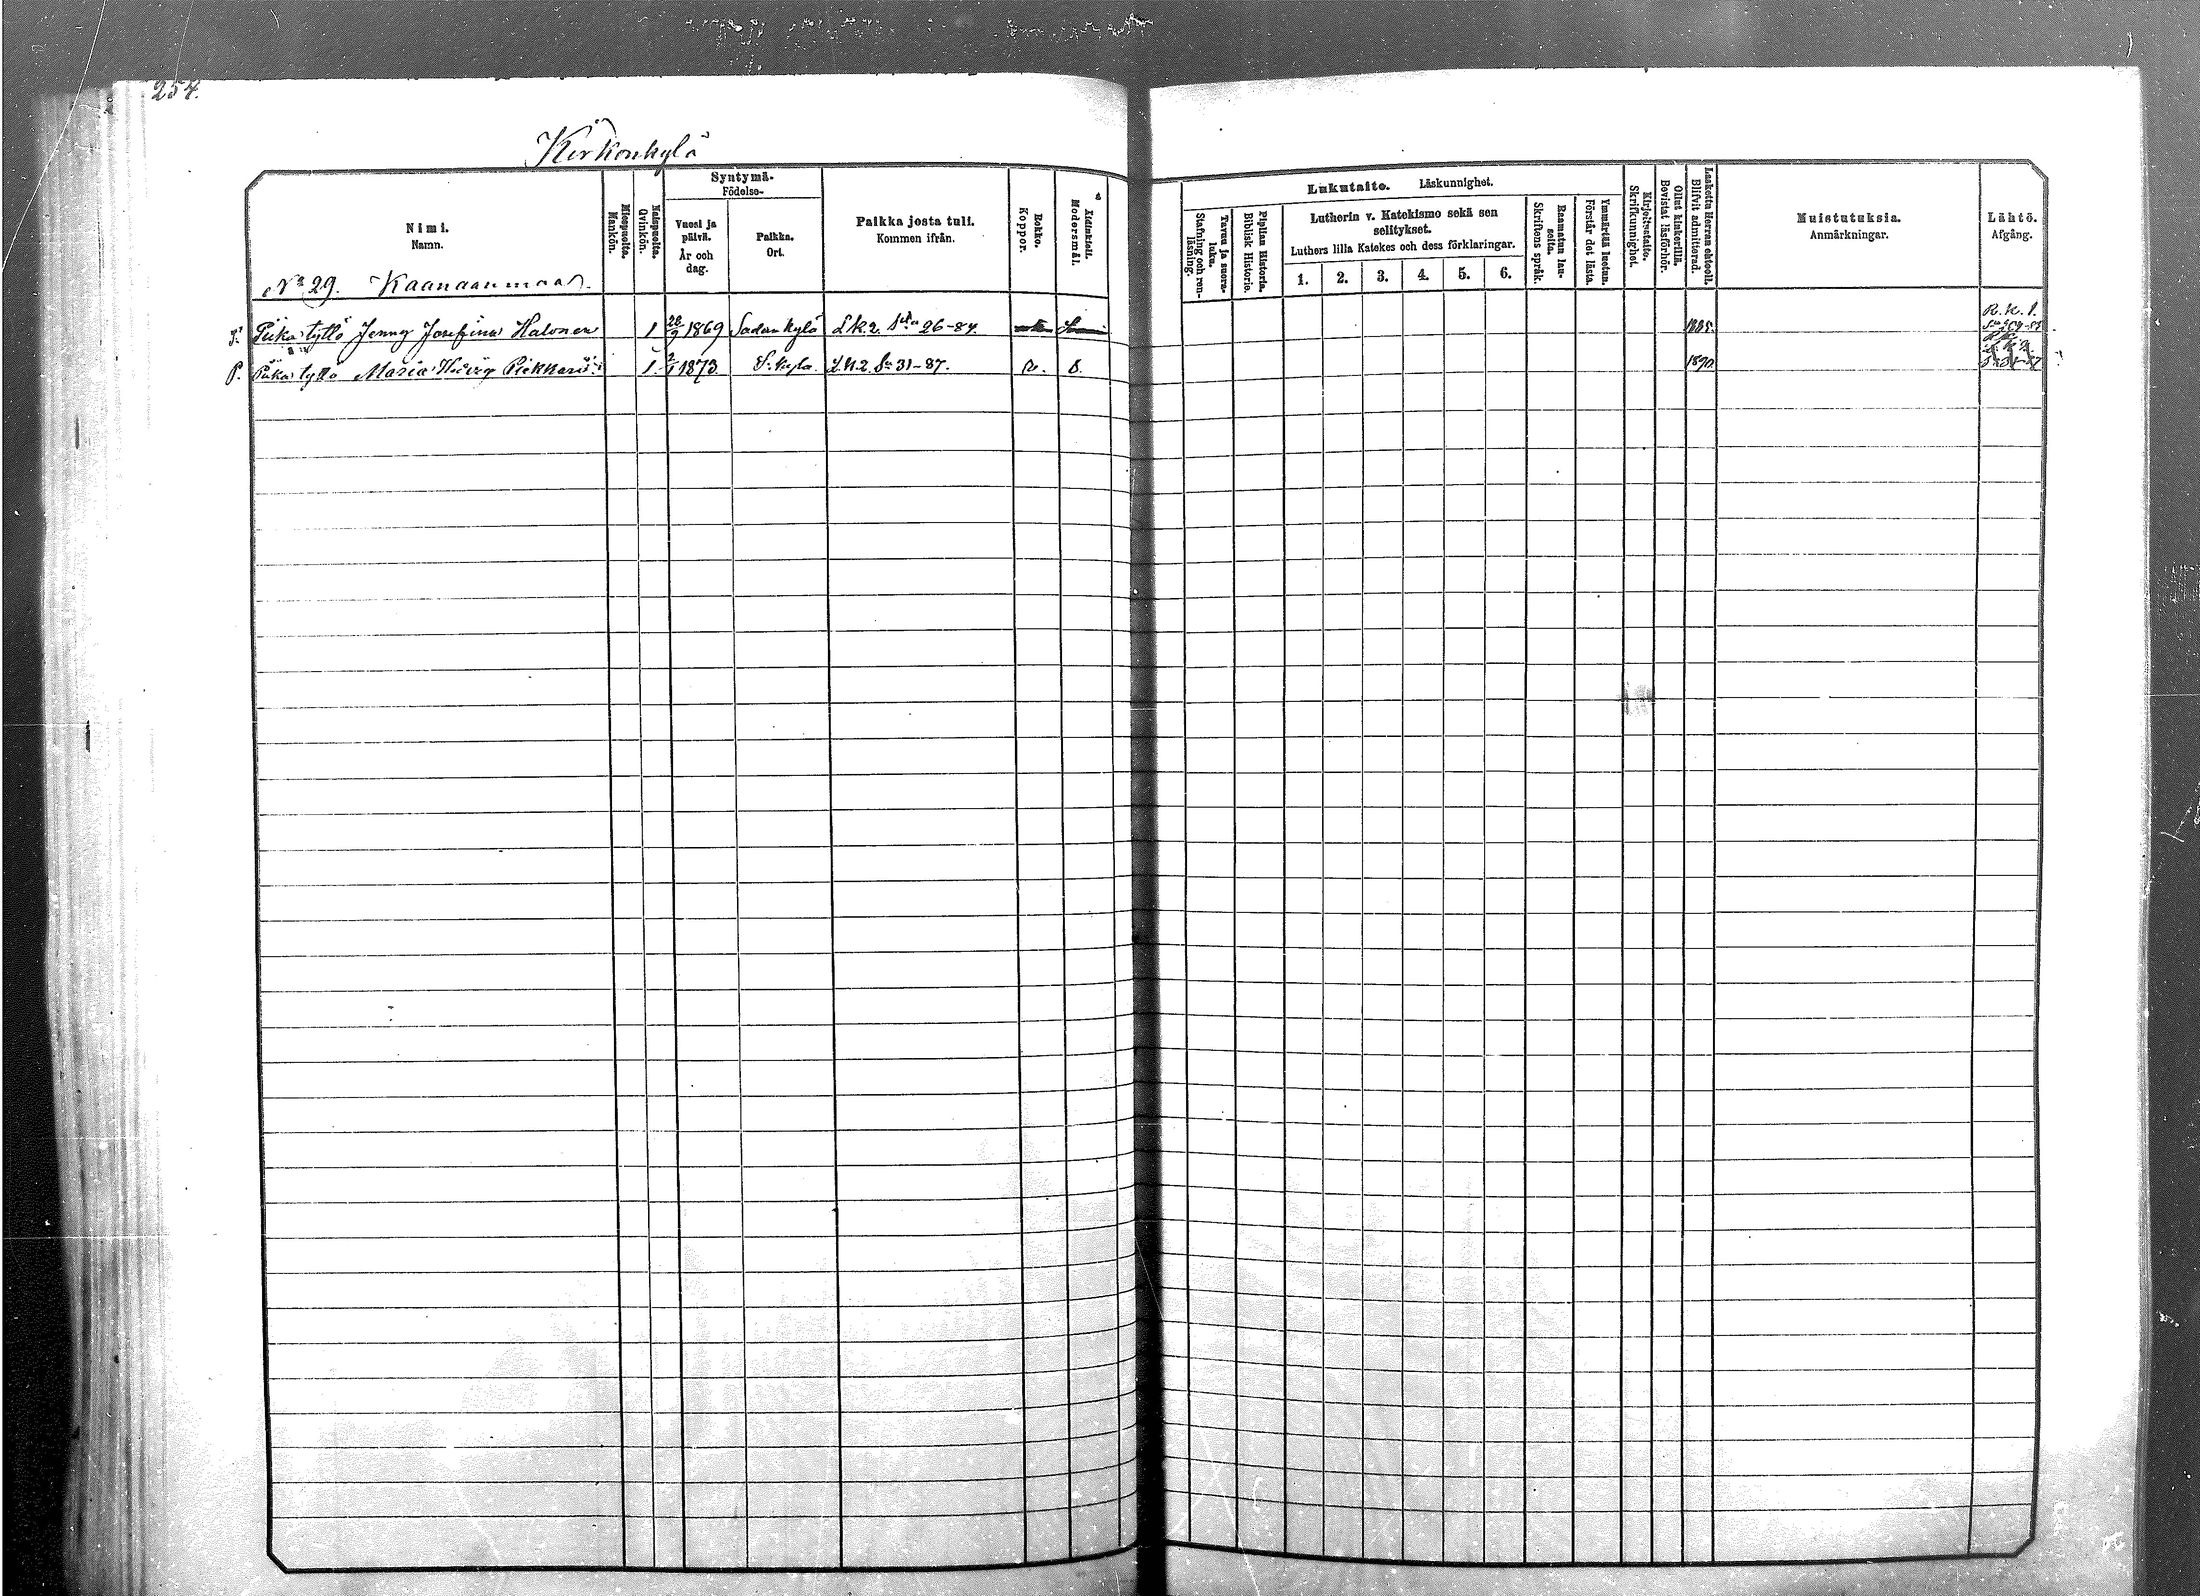 254.
Kirkonkylä
Nimi.
Namn.
Miespuolia.
Mankön.
Naispuolia.
Qvinkön.
Syntymä-
Födelse-
Vuosi ja päivä.
År och dag.
Paikka.
Ort.
Paikka josta tuli.
Kommen ifrån.
Rokko.
Koppor.
Äidinkieli.
Modersmål.
Lukutaito. Läskunnighet.
Tavuu ja suora-luku.
Stafning och ren-läsning.
Piplian Historia.
Biblisk Historie.
Lutherin v. Katekismo sekä sen selitykset.
Luthers lilla Katekes och dess förklaringar.
1. 2. 3. 4. 5. 6.
Raamatun lau-seita.
Skriftens språk.
Ymmärtää luetun.
Förstår det lästa.
Kirjoitustaito.
Skrifkunnighet.
Ollut kinkerillä.
Bevistat läsförhör.
Laskettu Herran ehtoolle.
Blifvit admitterad.
Muistutuksia.
Anmärkningar.
Lähtö.
Afgång.
No 29. Kaanaanmaa.
Piika tyttö Jenny Josefina Halonen 1 28/9 1869 Sadankylä L.K.2. 26-84. 1885. R.K.1.
P. Piika tyttö Maria Hedvig Piekkari 1. 2/1 1873. S. kylä. L.K.2. Sn 31-87. R. S. 1890.